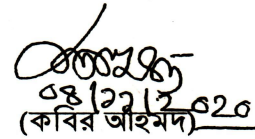 ০৪/১১/২০২০
(কবির আহমদ)